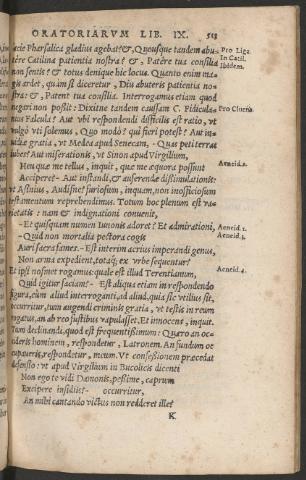 ORATORIARVM LIB. IX. 513
acie Pharsalica gladius agebat? &, Quousque tandem abu Pro Liga.
tére Catilina patientia nostra? &, Patére tua consilia In Catil.
non sentis? & totus denique hic locus. Quanto enim ma ibidem.
gis ardet, quàm si diceretur, Diu abuteris patientia no-
stra: &, Patent tua consilia. Interrogamus etiam quod
negari non possit: Dixitne tandem caussam C. Fidicula- Pro Cluētia.
nius Falcula? Aut vbi respondendi difficilis est ratio, vt
vulgò vti solemus, Quo modo? qui fieri potest? Aut in-
uidiae gratia, vt Medea apud Senecam, -Quas peti terras
iubes? Aut miserationis, vt Sinon apud Virgilium,
Heu quae me tellus, inquit, quae me aequora possunt Aeneid.2.
Accipere? -Aut instandi, & auferendae dissimulationis:
vt Asinius, Audisne? furiosum, inquam, non inofficiosum
testamentum reprehendimus. Totum hoc plenum est va-
rietatis: nam & indignationi conuenit,
-Et quisquam numen Iunonis adoret? Et admirationi, Aeneid.1.
-Quid non mortalia pectora cogis Aeneid.3.
Auri sacra fames? -Est interim acrius imperandi genus,
Non arma expedient, totaq; ex vrbe sequentur? Aeneid.4.
Et ipsi nosmet rogamus: quale est illud Terentianum,
Quid igitur faciam? -Est aliqua etiam in respondendo
figura, cùm aliud interroganti, ad aliud, quia sic vtilius sit,
occurritur, tum augendi criminis gratia, vt testis in reum
rogatus, an ab reo fustibus vapulasset, Et innocens, inquit.
Tum declinandi, quod est frequentissimum: Quaero an oc
cideris hominem, respondetur, Latronem. An fundum oc
cupaueris, respondetur, meum. Vt confessionem praecedat
defensio: vt apud Virgilium in Bucolicis dicenti
Non ego te vidi Damonis, pessime, caprum
Excipere insidiis? - occurritur,
An mihi cantando victus non redderet ille?
K.